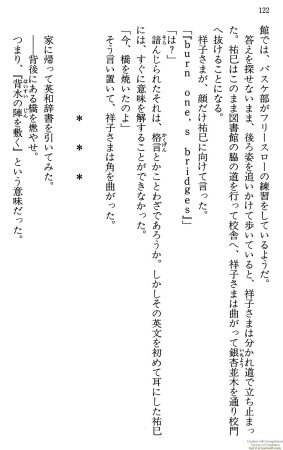 122
館では、バスケ部がフリースローの練習をしているようだ。
　答えを探せないまま、後ろ姿を追いかけて歩いていると、祥子さまは分かれ道で立ち止まっ
た。祐巳はこのまま図書館の脇の道を行って校舎へ、祥子さまは曲がって銀杏並木を通り校門
へ抜けることになる。
　祥子さまが、顔だけ祐巳に向けて言った。
「『burn one's bridges』」
「は？」
　諳んじられたそれは、格言とかことわざであろうか。しかしその英文を初めて耳にした祐巳
には、すぐに意味を解することができなかった。
「今、橋を焼いたのよ」
　そう言い置いて、祥子さまは角を曲がった。
＊　＊　＊
　家に帰って英和辞書を引いてみた。
　――背後にある橋を燃やせ。
　つまり、『背水の陣を敷く』という意味だった。